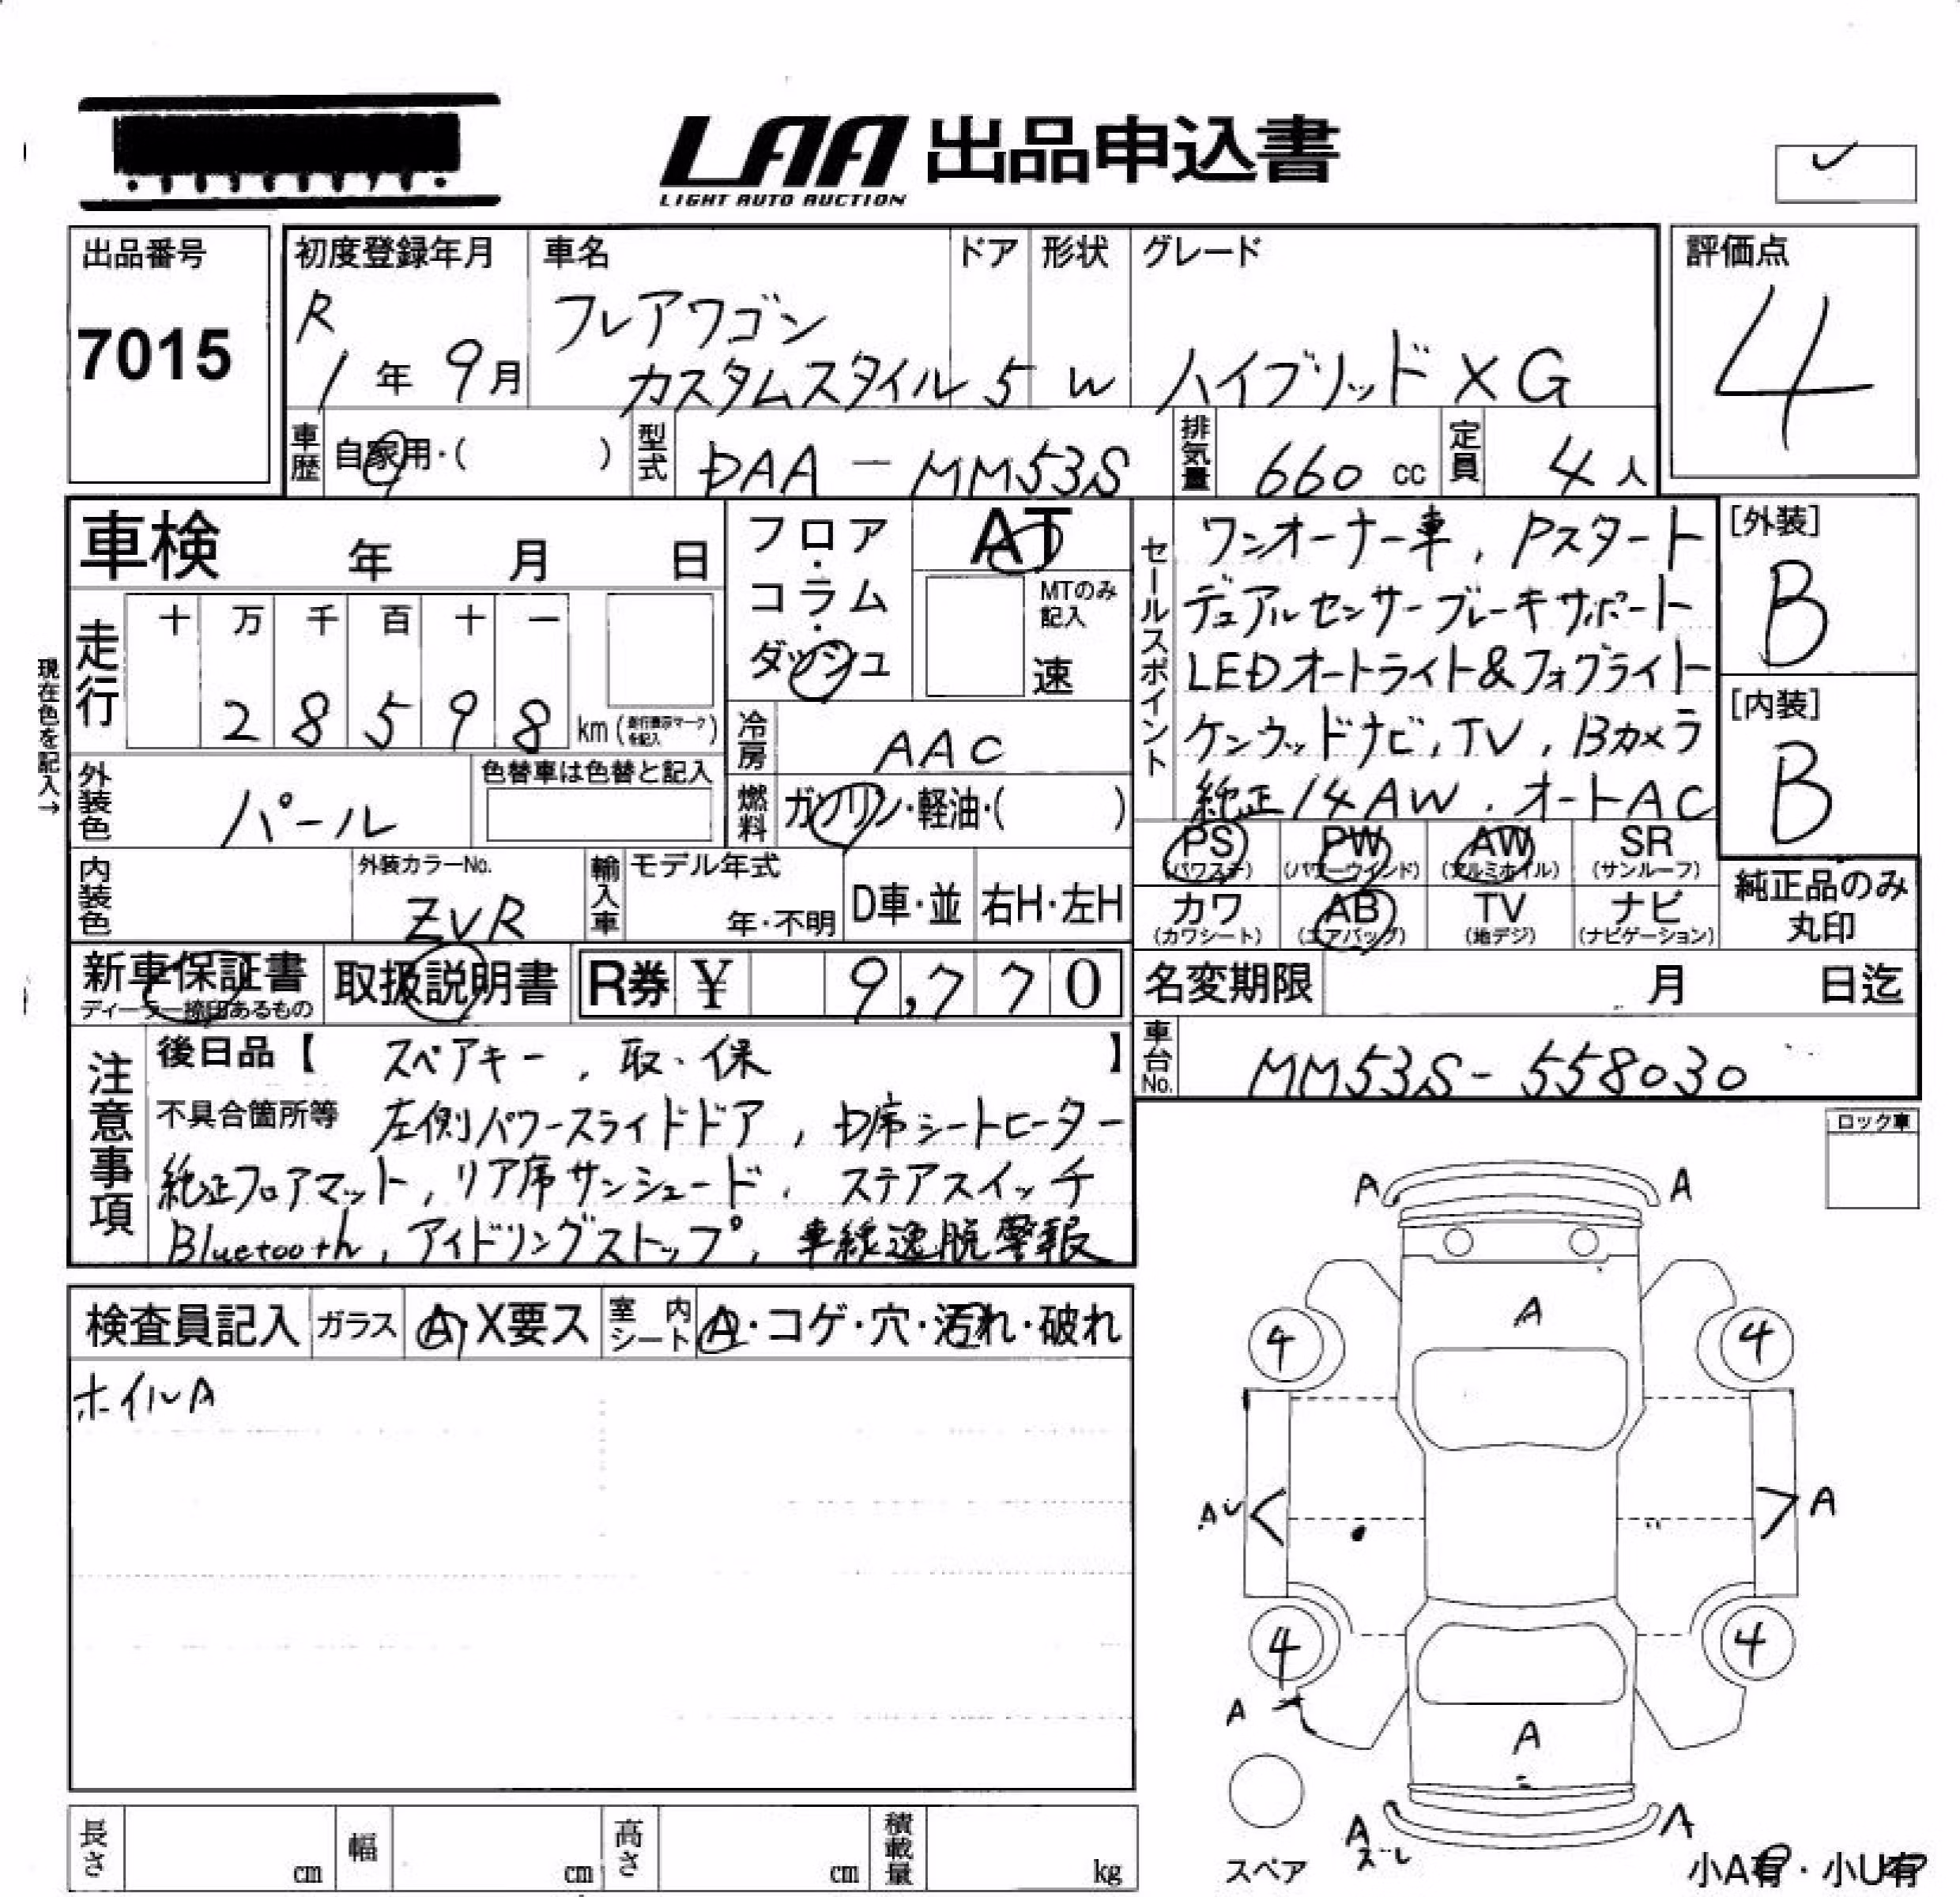 LAA 出品申込書
LIGHT AUTO AUCTION
出品番号
7015
初度登録年月
R
1年 9月
車名
フレアワゴン
カスタムスタイル
ドア
5
形状
W
グレード
ハイブリッド XG
評価点
4
車歴 自家用・( )
型式 DAA-MM53S
排気量 660 cc
定員 4人
車検 年 月 日
フロア・コラム・ダッシュ
AT
MTのみ記入
速
走行 十 万 千 百 十 一
2 8 5 9 8 km (走行表示マークを記入)
現在色を記入→
冷房 AAC
燃料 ガソリン・軽油・( )
外装色 パール
色替車は色替と記入
内装色
外装カラーNo.
ZVR
輸入車 モデル年式
年・不明
D車・並
右H・左H
セールスポイント
ワンオーナー車, Pスタート
デュアルセンサーブレーキサポート
LEDオートライト&フォグライト
ケンウッドナビ, TV, Bカメラ
純正14AW, オートAC
[外装]
B
[内装]
B
PS (パワステ) PW (パワーウインド) AW (アルミホイル) SR (サンルーフ)
カワ (カワシート) AB (エアバッグ) TV (地デジ) ナビ (ナビゲーション)
純正品のみ
丸印
新車保証書
ディーラー捺印あるもの
取扱説明書
R券 ¥ 9,770
名変期限 月 日迄
車台No. MM53S-558030
注意事項
後日品【 スペアキー, 取・保 】
不具合箇所等 左側パワースライドドア, D席シートヒーター
純正フロアマット, リア席サンシェード, ステアスイッチ
Bluetooth, アイドリングストップ, 車線逸脱警報
ロック車
検査員記入 ガラス A・X要ス 室内シート A・コゲ・穴・汚れ・破れ
ホイルA
A A
A
4 4
A A
4 4
A
A
A A
ズレ
スペア
小A有・小U有
長さ cm 幅 cm 高さ cm 積載量 kg